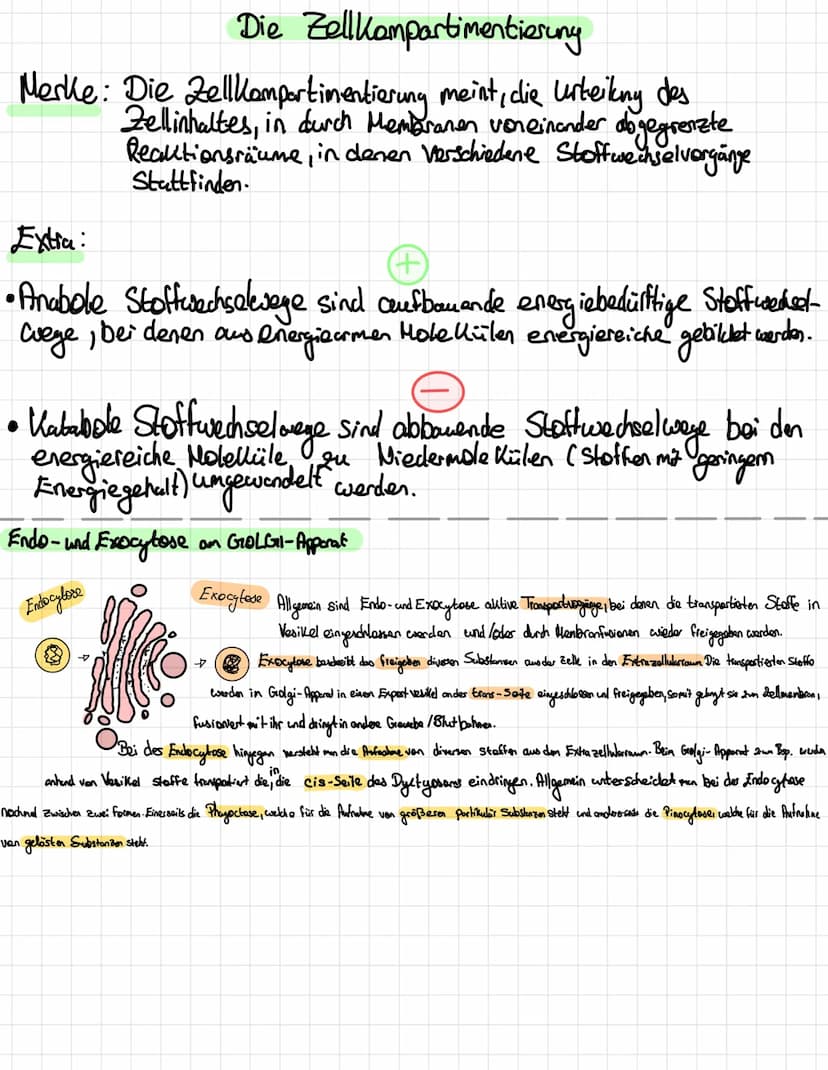 Die Zellkompartimentierung
Merke: Die Zellkompartimentierung meint, die Urteilung des
Zellinhaltes, in durch Membranen voneinander abgegrenzte
Reaktionsräume, in denen verschiedene Stoffwechselvorgänge
Stattfinden.
Extra:
+
• Anabole Stoffwechselwege sind aufbauende energiebedürftige Stoffwechsel-
wege, bei denen aus energiearmen Molekülen energiereiche gebildet werden.
−
• Katabole Stoffwechselwege sind abbauende Stoffwechselwege bei den
energiereiche Moleküle zu Niedermolekülen (Stoffen mit geringem
Energiegehalt) umgewandelt werden.
Endo- und Exocytose am GOLGI-Apparat
Endocytose
Exocytose
Allgemein sind Endo- und Exocytose aktive Transportvorgänge, bei denen die transportierten Stoffe in
Vesikel eingeschlossen werden und/oder durch Membranfusionen wieder freigegeben werden.
Exocytose beschreibt das freigeben diversen Substanzen aus der Zelle in den Extrazellulärraum. Die transportierten Stoffe
werden in Golgi-Apparat in einen Exportvesikel an der trans-Seite eingeschlossen und freigegeben, somit gelangt sie zum Zellmembran,
fusioniert mit ihr und dringt in andere Gewebe/Blutbahnen.
Bei des Endocytose hingegen versteht man die Aufnahme von diversen Stoffen aus dem Extrazellulärraum. Beim Golgi-Apparat zum Bsp. werden
anhand von Vesikel stoffe transportiert die, in die cis-Seite des Dyctyosoms eindringen. Allgemein unterscheidet man bei der Endocytose
nochmal zwischen zwei Formen. Einerseits die Phagoctose, welche für die Aufnahme von größeren partikulär Substanzen steht und andererseits die Pinocytose, welche für die Aufnahme
von gelösten Substanzen steht.